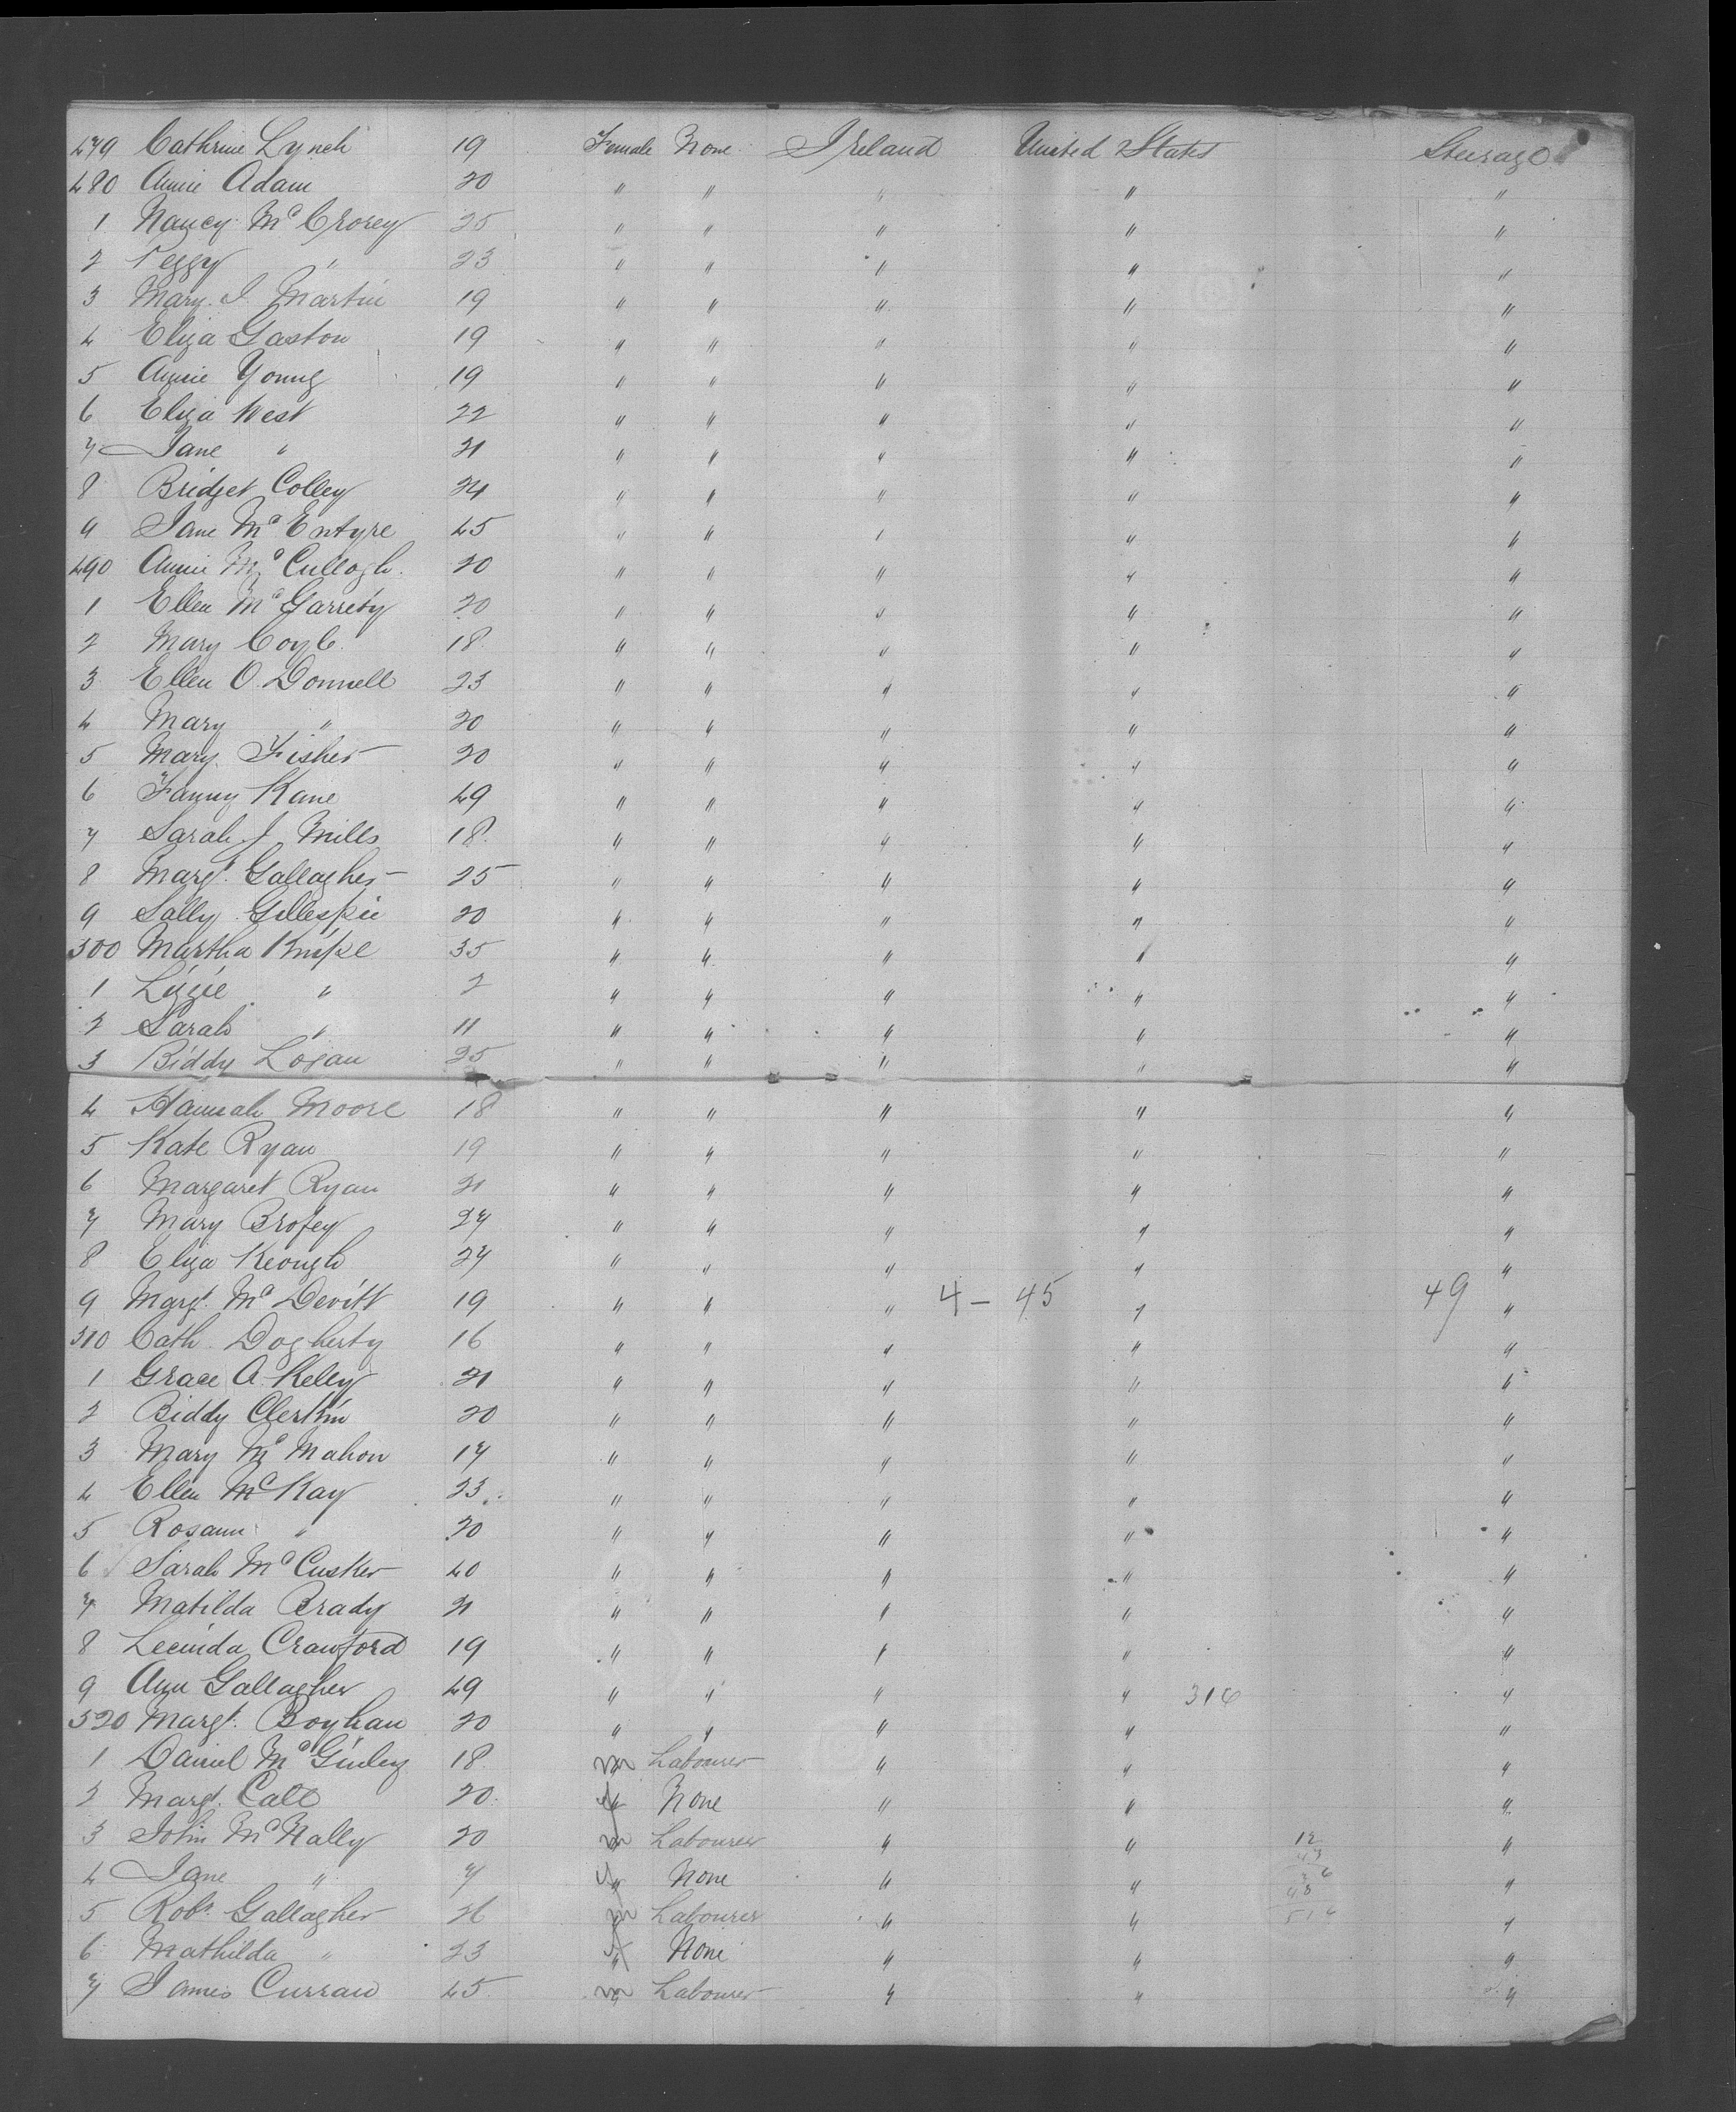 479 Cathrine Lynch 19 Female None Ireland United States Steerage
480 Annie Adam 20 " " " " "
1 Nancy McCrorey 25 " " " " "
2 Peggy " 23 " " " " "
3 Mary J. Martin 19 " " " " "
4 Eliza Gaston 19 " " " " "
5 Annie Young 19 " " " " "
6 Eliza West 22 " " " " "
7 Jane " 21 " " " " "
8 Bridget Colley 24 " " " " "
9 Jane McEntyre 45 " " " " "
490 Annie McCullogh 20 " " " " "
1 Ellen McGarrety 20 " " " " "
2 Mary Coyle 18 " " " " "
3 Ellen O. Donnell 23 " " " " "
4 Mary " 20 " " " " "
5 Mary Fisher 20 " " " " "
6 Fanny Kane 49 " " " " "
7 Sarah J Mills 18 " " " " "
8 Margt. Gallagher 25 " " " " "
9 Sally Gillespie 20 " " " " "
300 Martha Knipe 35 " " " " "
1 Lizzie " 2 " " " " "
2 Sarah " 11 " " " " "
3 Biddy Logan 25 " " " " "
4 Hannah Moore 18 " " " " "
5 Kate Ryan 19 " " " " "
6 Margaret Ryan 21 " " " " "
7 Mary Brofey 27 " " " " "
8 Eliza Keough 27 " " " " "
9 Margt. McDevitt 19 " " " 4 - 45 " 49 "
310 Cath. Dogherty 16 " " " " "
1 Grace A. Keley 21 " " " " "
2 Biddy Clerkin 20 " " " " "
3 Mary McMahon 17 " " " " "
4 Ellen McKay 23 " " " " "
5 Rosann " 20 " " " " "
6 Sarah McCusker 40 " " " " "
7 Matilda Brady 21 " " " " "
8 Lecinda Crawford 19 " " " " "
9 Ann Gallagher 49 " " " " 316 "
520 Margt. Boyhan 20 " " " " "
1 Daniel McGinley 18 m Labourer " " "
2 Margt. Call 20 f None " " "
3 John McNally 20 m Labourer " " 12 "
4 Jane " 7 f None " " "
5 Robt. Gallagher 26 m Labourer " " "
6 Mathilda " 23 f None " " "
7 James Curran 45 m Labourer " " "